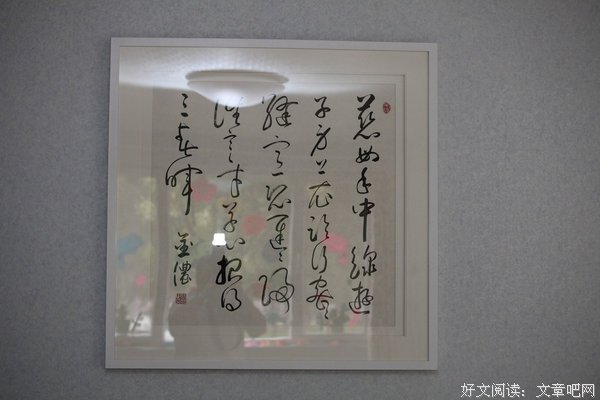 慈母手中線遊
子身上衣臨行密密
縫意恐遲遲歸
誰言寸草心報得
三春暉
好文阅读：文章吧网